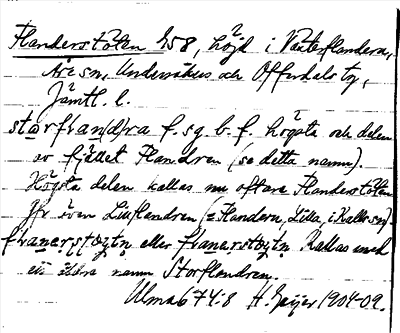 Flanderstöten 958, höjd i Västerflandern,
Åre sn, Undersåkers och Offerdals tg,
Jämtl. l.
storfran(d)ra f. sg. b. f. högsta och delen
av fjället Flandren (se detta namn).
Högsta delen kallas nu oftare Flanderstöten
Jfr även Lillflandren (= Flandern, Lilla, i Kalls sn).
franerstøytn eller franerstøtn Kallas med
ett äldre namn Storflandren.
Ulma 674:8 H. Geijer 1904-09.